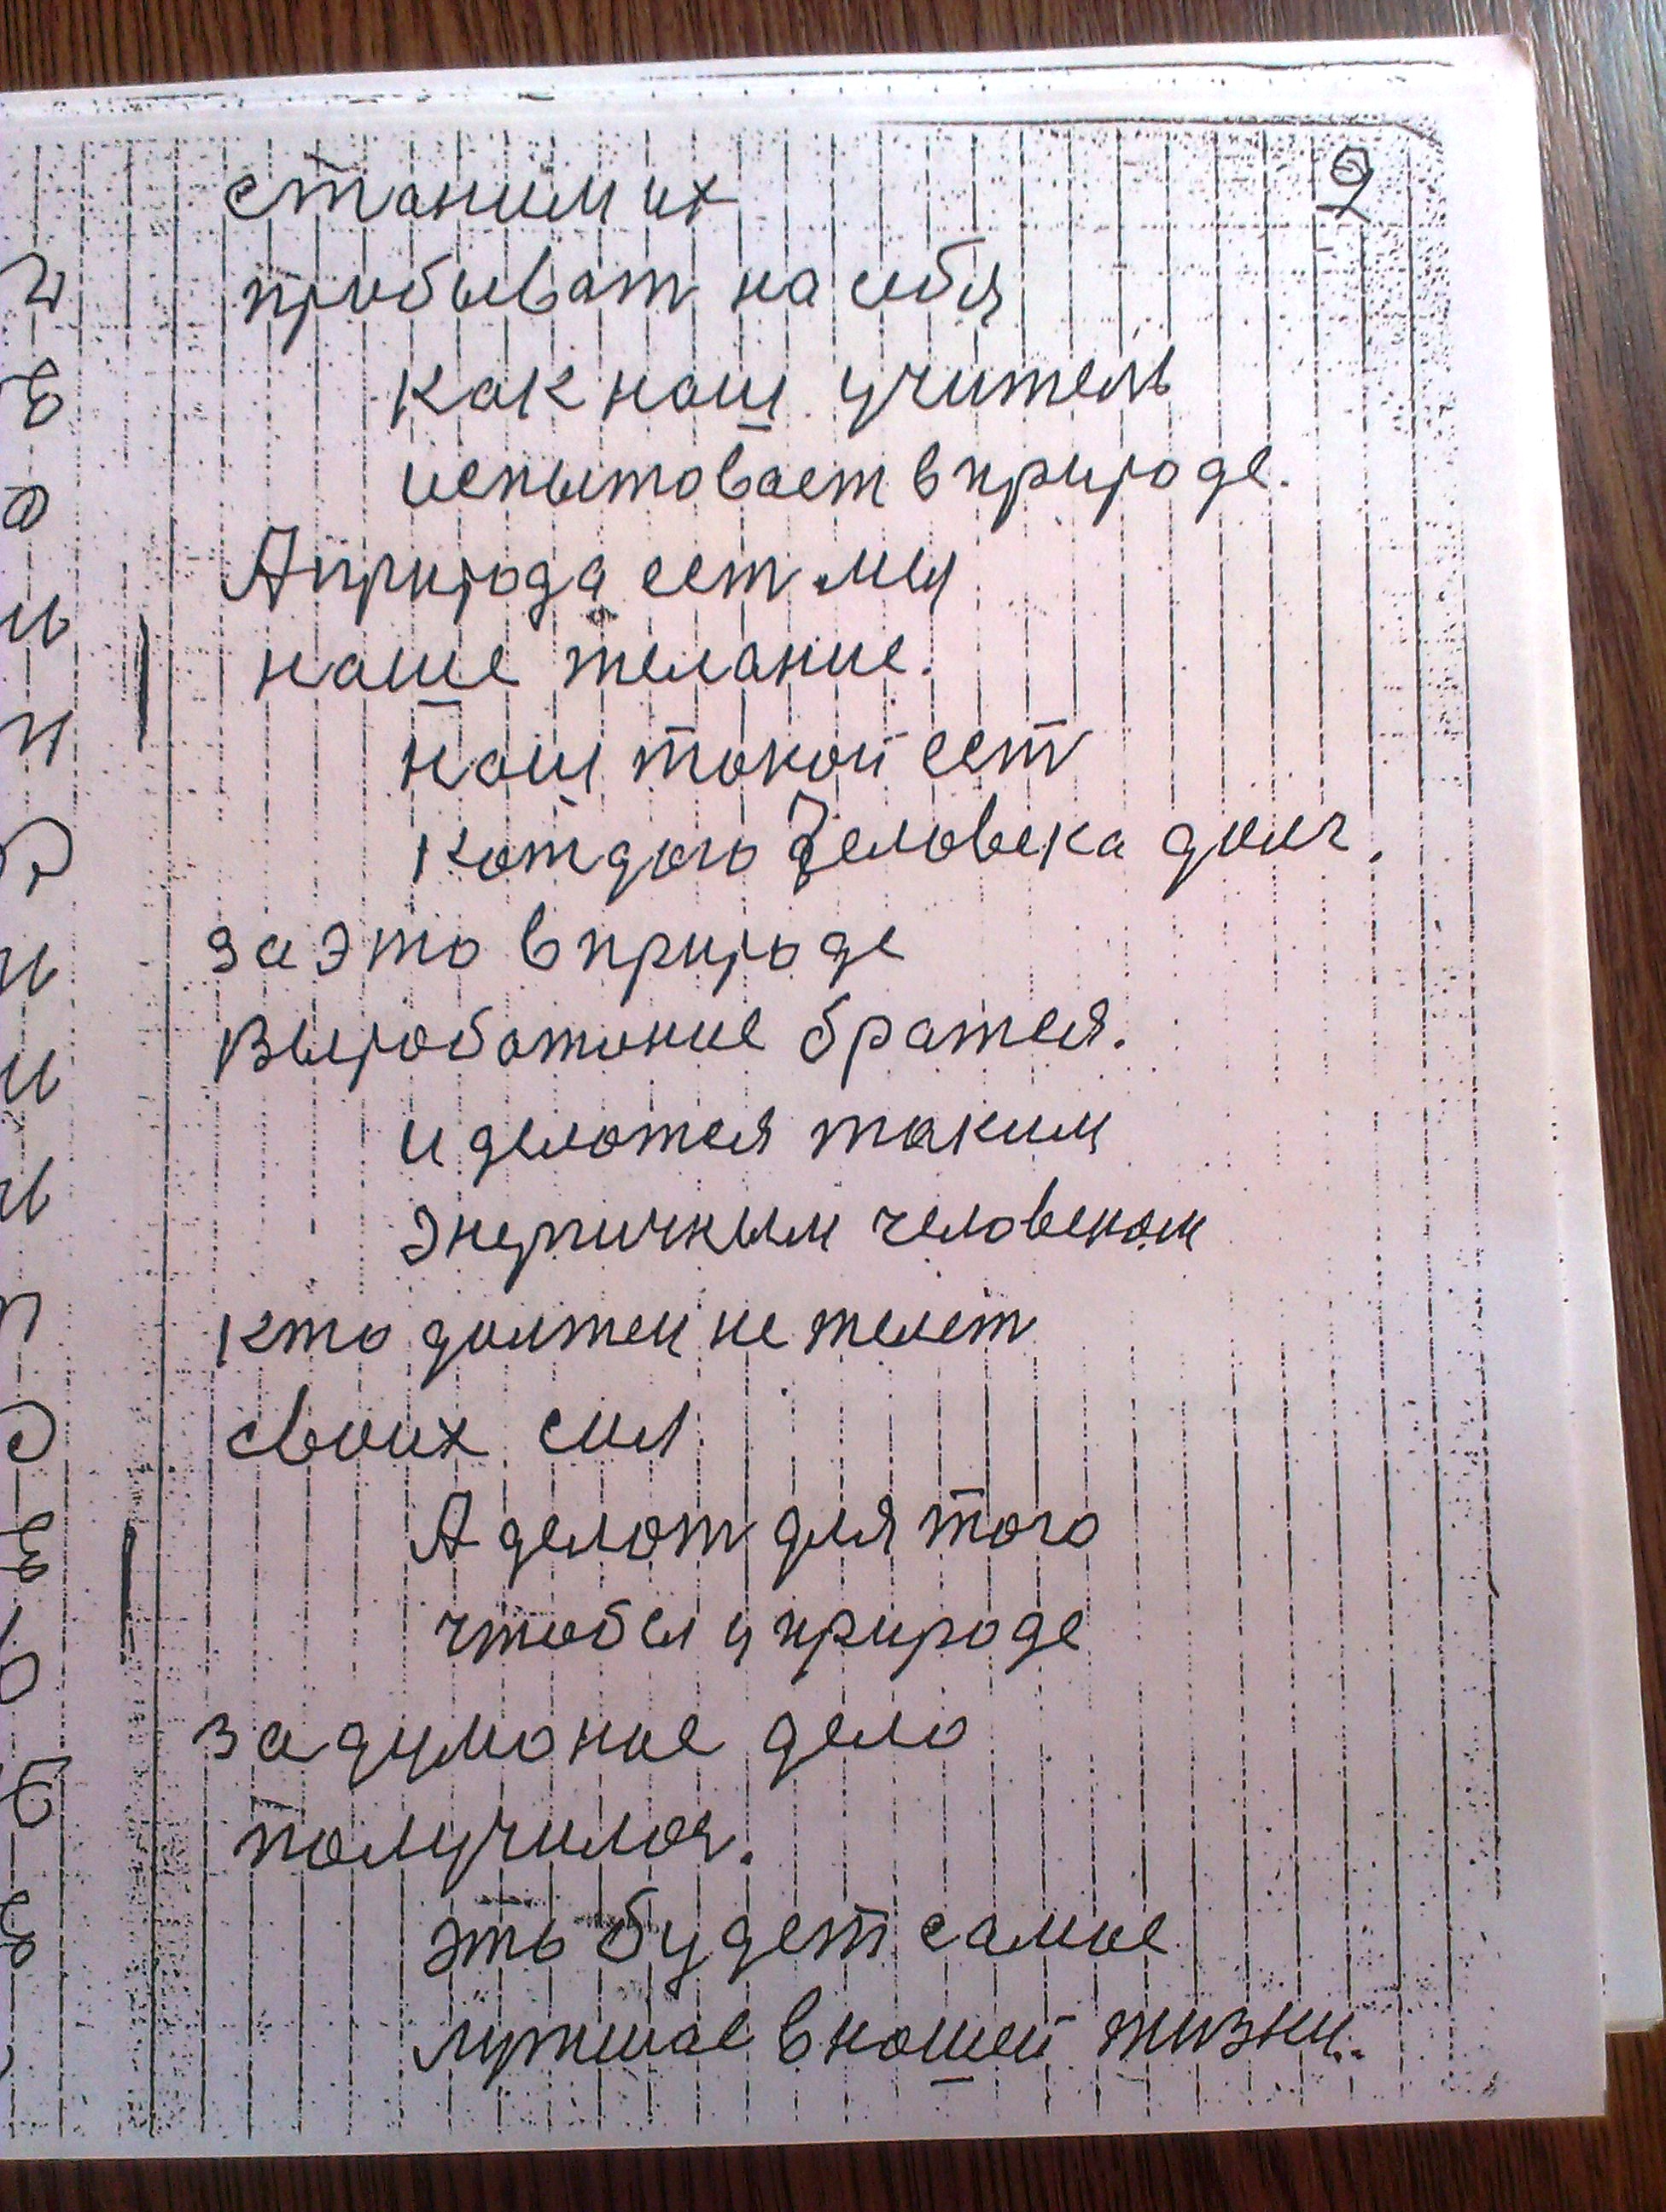 9
станим их
пробыват на себя
как наш учитель
испытовает в природе.
А природа ест мы
наше желание.
наш такой ест
каждого Человека долг.
за это в природе
выроботоние братся.
и делатся таким
энергичным человеком
кто должен не желет
своих сил
А делат для того
чтобы у природе
задуманое дело
получилос.
это будет самое
лутшае в нашей жизни.